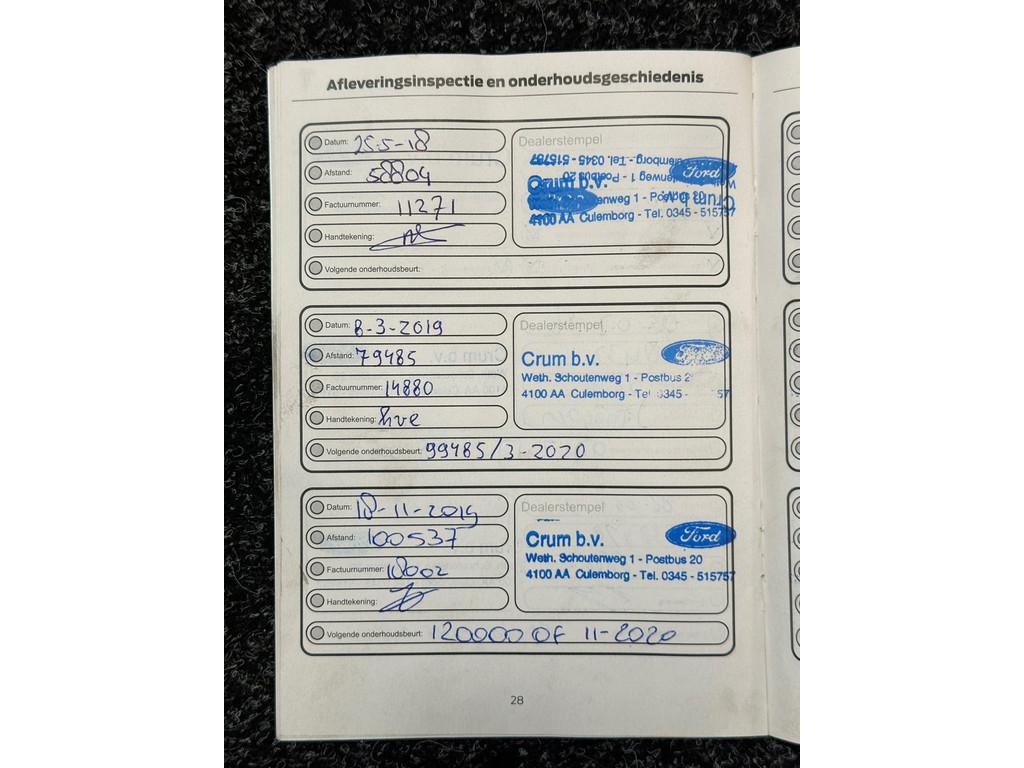 Afleveringsinspectie en onderhoudsgeschiedenis
Datum: 25-5-18
Afstand: 58804
Factuurnummer: 11271
Handtekening:
Volgende onderhoudsbeurt:
Dealerstempel
Ford
Crum b.v.
enweg 1 - Postbus 20
4100 AA Culemborg - Tel. 0345 - 515757
Datum: 8-3-2019
Afstand: 79485
Factuurnummer: 14880
Handtekening:
Volgende onderhoudsbeurt: 99485/3-2020
Dealerstempel
Crum b.v.
Weth. Schoutenweg 1 - Postbus 2
4100 AA Culemborg - Tel 0345 - 57
Datum: 18-11-2019
Afstand: 100537
Factuurnummer: 18002
Handtekening:
Volgende onderhoudsbeurt: 120000 OF 11-2020
Dealerstempel
Ford
Crum b.v.
Weth. Schoutenweg 1 - Postbus 20
4100 AA Culemborg - Tel. 0345 - 515757
28